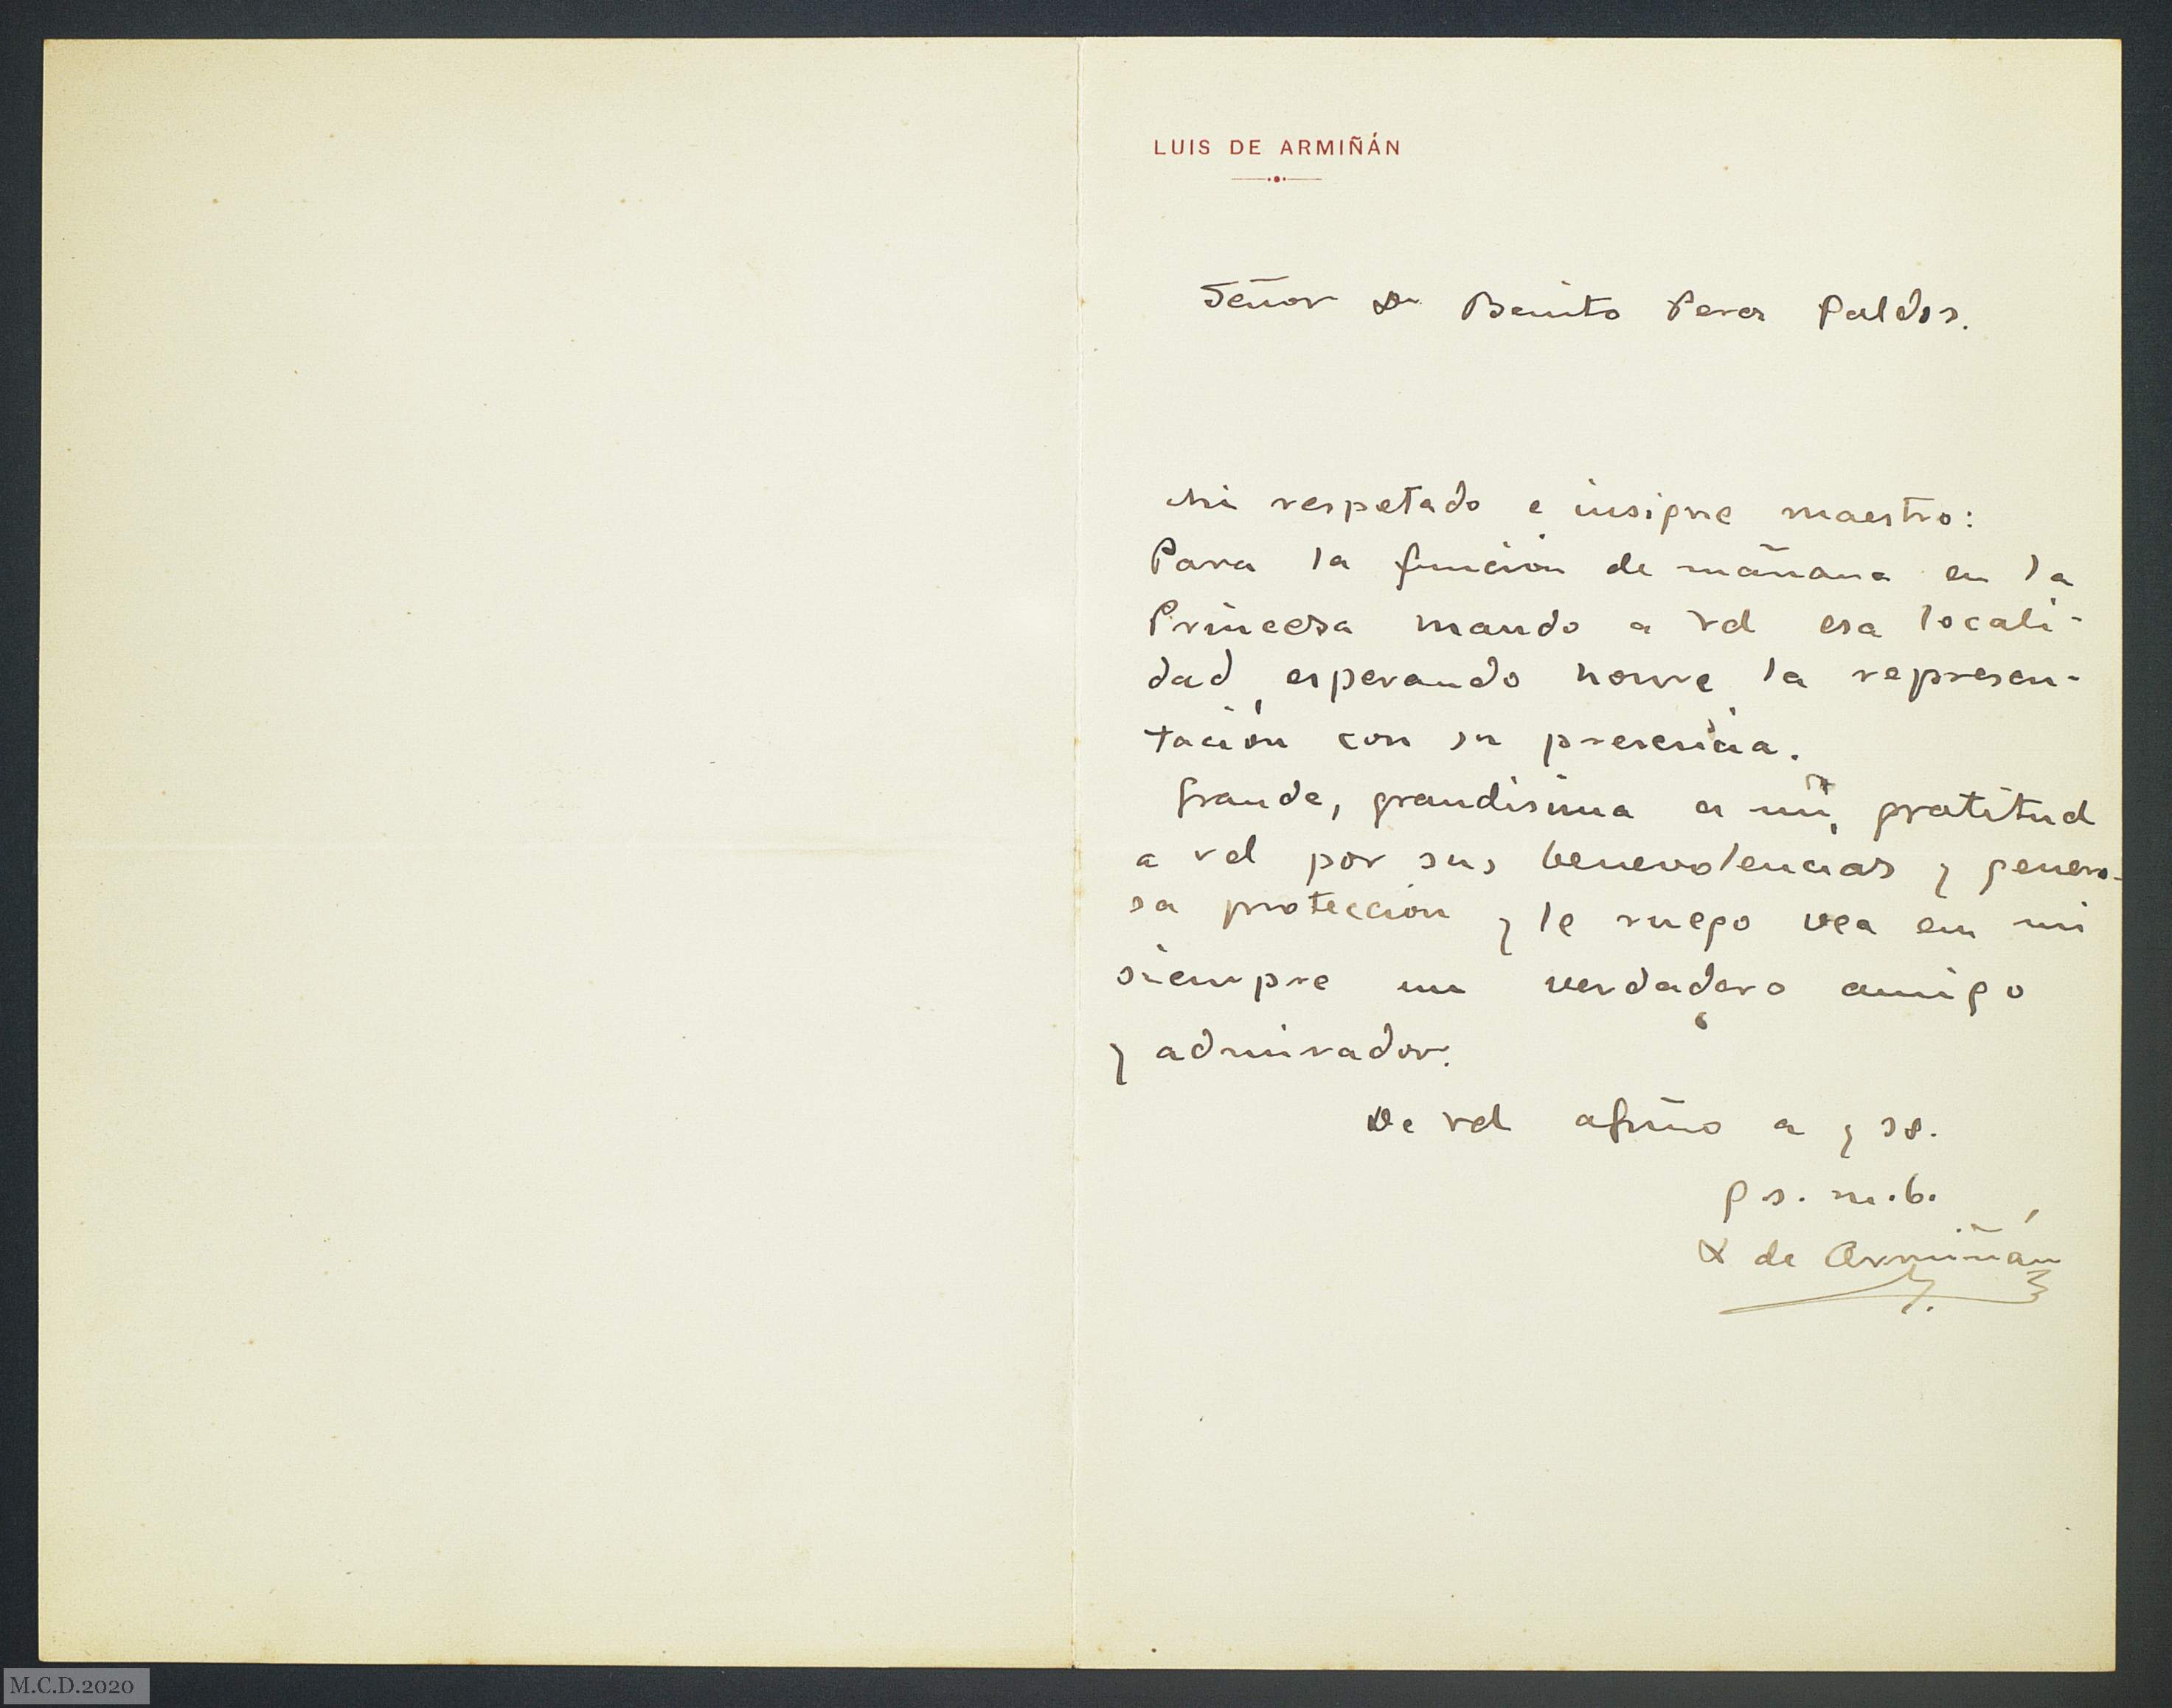 LUIS DE ARMIÑÁN
Señor Dn Benito Perez Galdos.
Mi respetado e insigne maestro:
Para la función de mañana en la
Princesa mando a Vd esa locali-
dad, esperando honre la represen-
tación con su presencia.
Grande, grandisima es mi gratitud
a Vd por sus benevolencias y genero-
sa protección y le ruego vea en mi
siempre un verdadero amigo
y admirador.
De Vd afmo a y ss.
q s. m. b.
L de Armiñán
M.C.D.2020